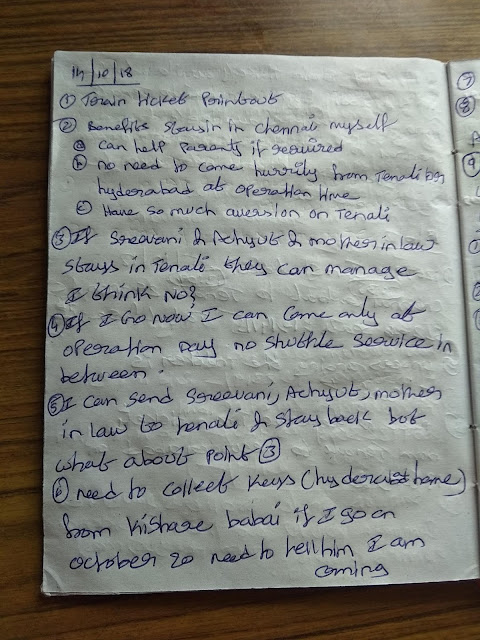 14/10/18
① Train ticket Printout
② Benefits stausin in chennai myself
ⓐ can help Parents if required
ⓑ no need to come hurrily from Tenali
hyderabad at operation time
ⓒ Have so much aversion on Tenali
③ If Sreevani & Achyut & mother in law
stays in Tenali they can manage
I think NO?
④ If I Go now I can Come only at
operation Day no shuttle service in
between.
⑤ I can send Sreevani, Achyut, mother
in law to tenali & stay back but
what about point ③
⑥ need to collect keys (hyderabad home)
from Kishore babai if I go on
october 20 need to tell him I am
coming
⑦
⑧
⑨